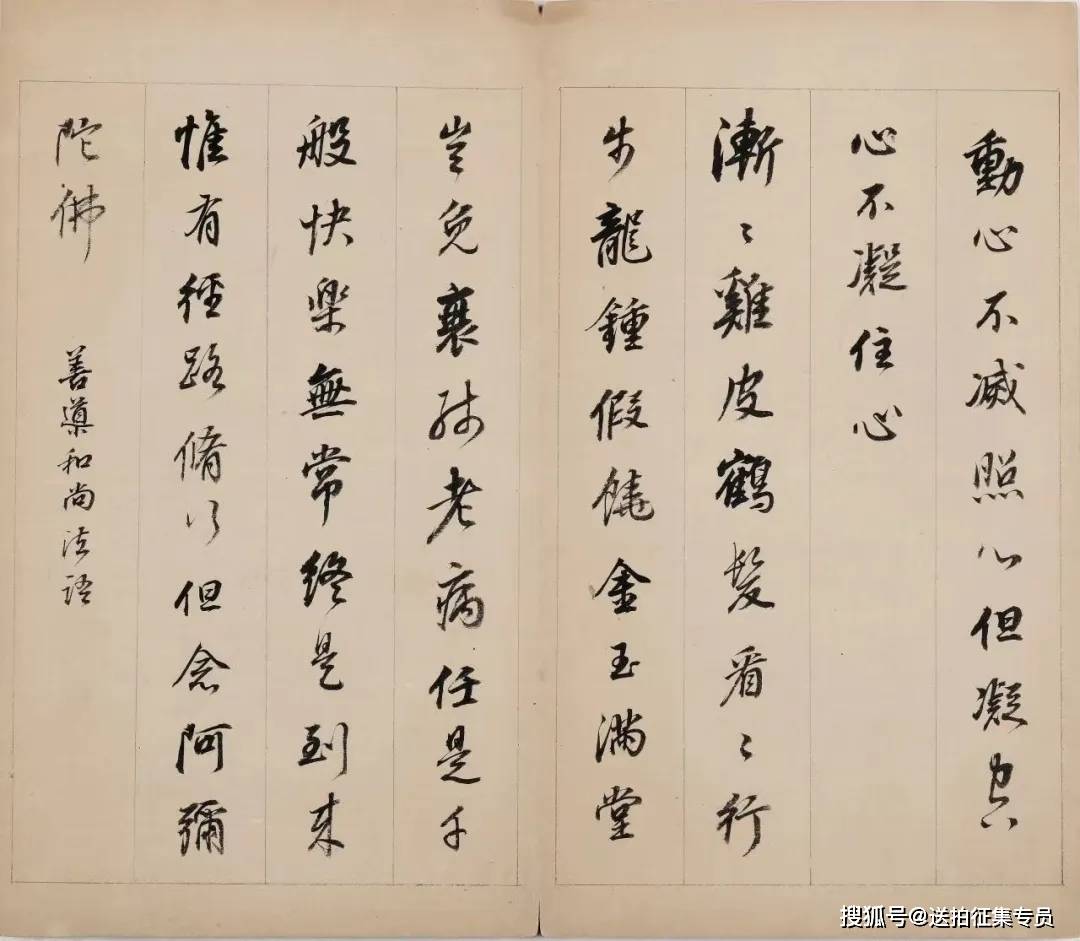 動心不滅照心但凝空
心不凝住心
漸〻雞皮鶴髮看〻行
步龍鍾假饒金玉滿堂
豈免衰殘老病任是千
般快樂無常終是到來
惟有徑路脩行但念阿彌
陀佛
善導和尚法語
搜狐号@送拍征集专员